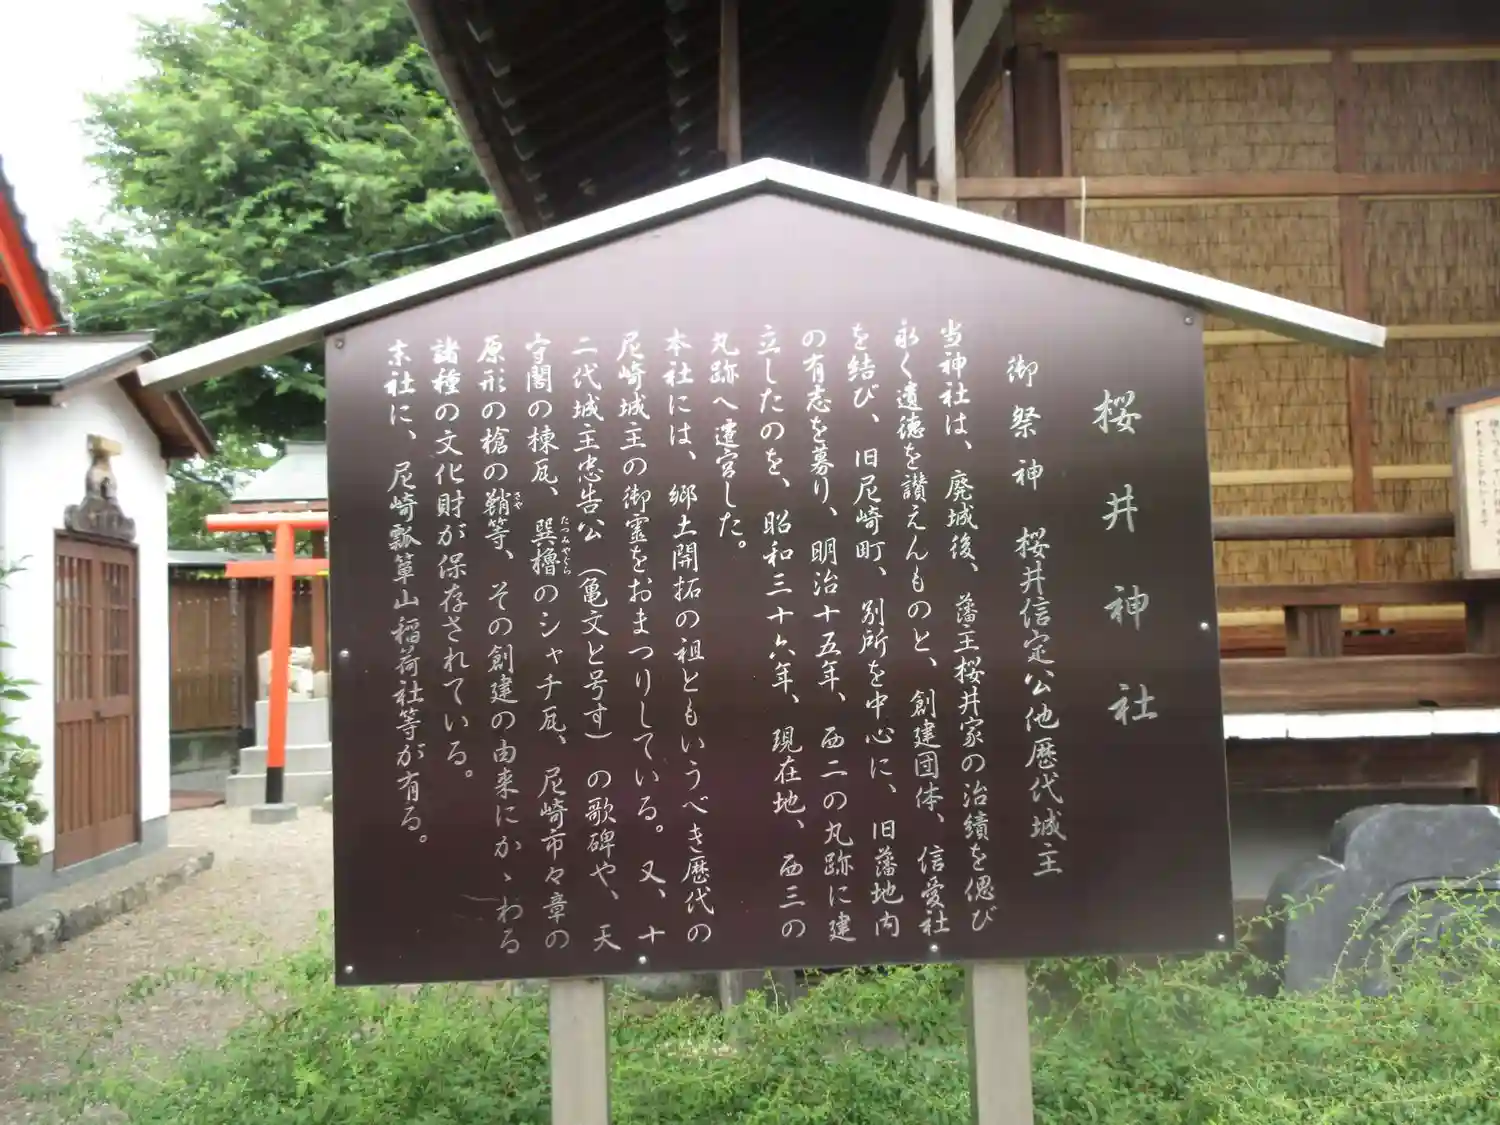 桜井神社
御祭神 桜井信定公他歴代城主
当神社は、廃城後、藩主桜井家の治績を偲び
永く遺徳を讃えんものと、創建団体、信愛社
を結び、旧尼崎町、別所を中心に、旧藩地内
の有志を募り、明治十五年、西二の丸跡に建
立したのを、昭和三十六年、現在地、西三の
丸跡へ遷宮した。
本社には、郷土開拓の祖ともいうべき歴代の
尼崎城主の御霊をおまつりしている。又、十
二代城主忠告公（亀文と号す）の歌碑や、天
守閣の棟瓦、巽櫓のシャチ瓦、尼崎市々章の
たつみやぐら
原形の槍の鞘等、その創建の由来にかゝわる
さや
諸種の文化財が保存されている。
末社に、尼崎瓢箪山稲荷社等が有る。